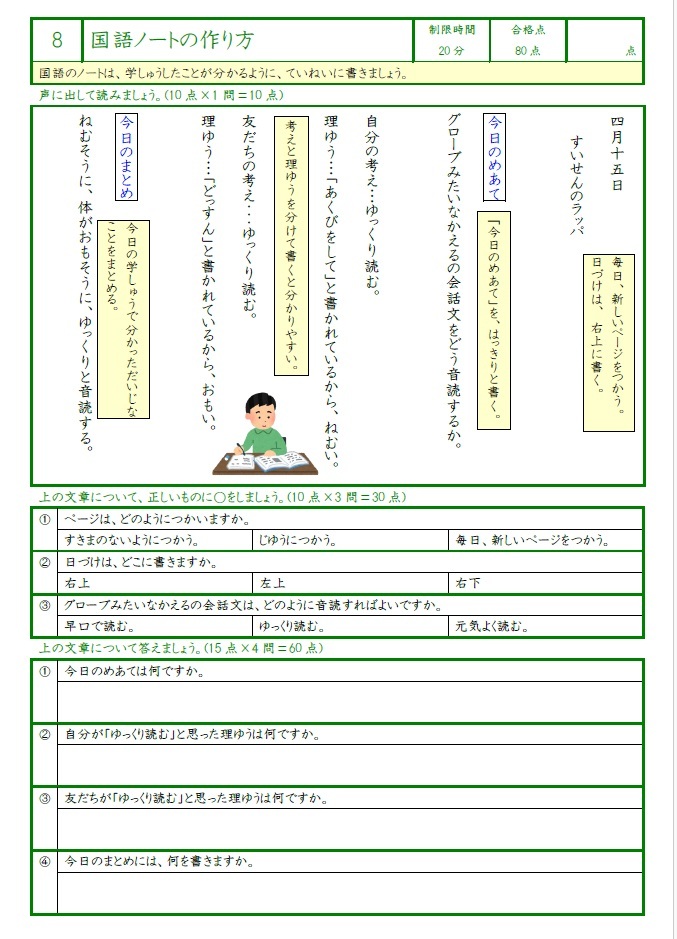 8
国語ノートの作り方
制限時間
20 分
合格点
80 点
点
国語のノートは、学しゅうしたことが分かるように、ていねいに書きましょう。
声に出して読みましょう。(10 点×1 問=10 点)
四月十五日
毎日、新しいページをつかう。
日づけは、右上に書く。
すいせんのラッパ
今日のめあて
「今日のめあて」を、はっきりと書く。
グローブみたいなかえるの会話文をどう音読するか。
自分の考え…ゆっくり読む。
理ゆう…「あくびをして」と書かれているから、ねむい。
考えと理ゆうを分けて書くと分かりやすい。
友だちの考え…ゆっくり読む。
理ゆう…「どっすん」と書かれているから、おもい。
今日のまとめ
今日の学しゅうで分かっただいじな
ことをまとめる。
ねむそうに、体がおもそうに、ゆっくりと音読する。
上の文章について、正しいものに○をしましょう。(10 点×3 問=30 点)
① ページは、どのようにつかいますか。
すきまのないようにつかう。 じゆうにつかう。 毎日、新しいページをつかう。
② 日づけは、どこに書きますか。
右上 左上 右下
③ グローブみたいなかえるの会話文は、どのように音読すればよいですか。
早口で読む。 ゆっくり読む。 元気よく読む。
上の文章について答えましょう。(15 点×4 問=60 点)
① 今日のめあては何ですか。
② 自分が「ゆっくり読む」と思った理ゆうは何ですか。
③ 友だちが「ゆっくり読む」と思った理ゆうは何ですか。
④ 今日のまとめには、何を書きますか。